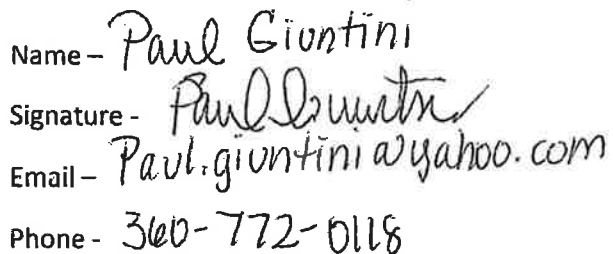 Name – Paul Giuntini
Signature - Paul Giuntini
Email – Paul.giuntini@yahoo.com
Phone - 360-772-0118